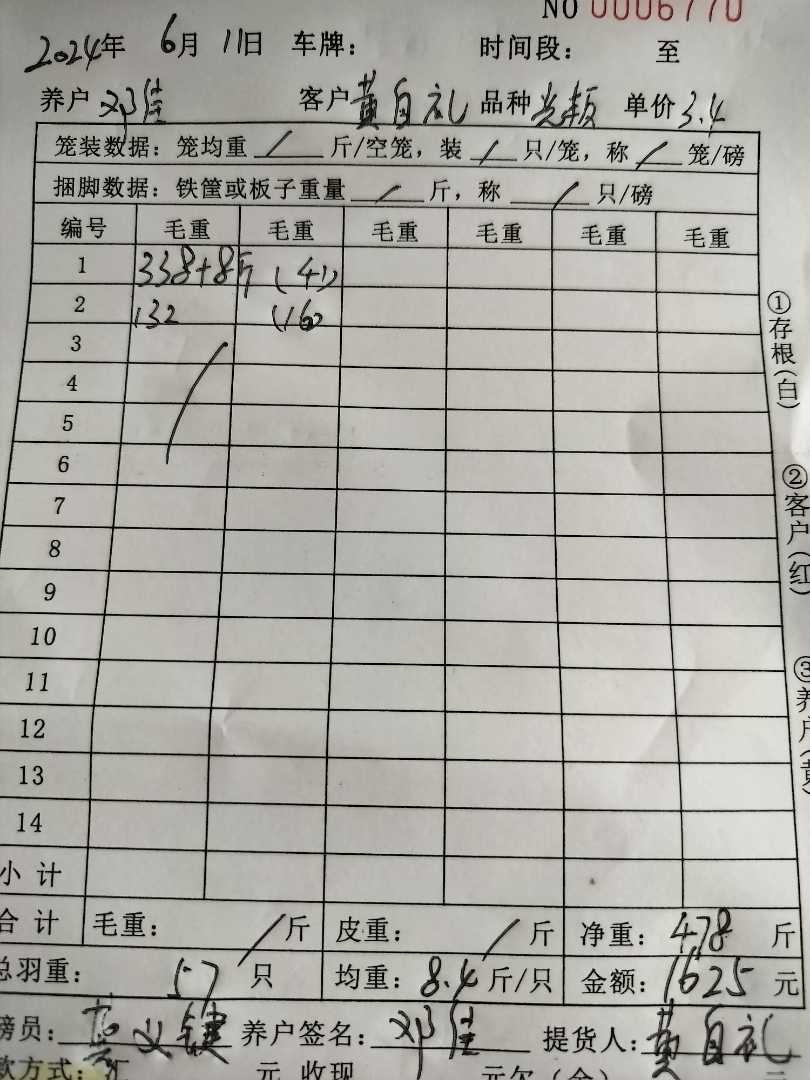 NO 0006770
2024年 6月 11日 车牌： 时间段： 至
养户 邓佳 客户 黄自礼 品种 单价 3.4
笼装数据：笼均重 / 斤/空笼，装 / 只/笼，称 / 笼/磅
捆脚数据：铁筐或板子重量 / 斤，称 / 只/磅
编号 毛重 毛重 毛重 毛重 毛重 毛重
1 338+8斤 (41)
2 132 (16)
3
4
5
6
7
8
9
10
11
12
13
14
小计
合计 毛重： / 斤 皮重： / 斤 净重：478 斤
总羽重： 57 只 均重：8.4 斤/只 金额：1625 元
磅员： 养户签名：邓佳 提货人：黄自礼
款方式：汇 元 收现 元欠(余) 元
①存根(白)
②客户(红)
③养户(黄)